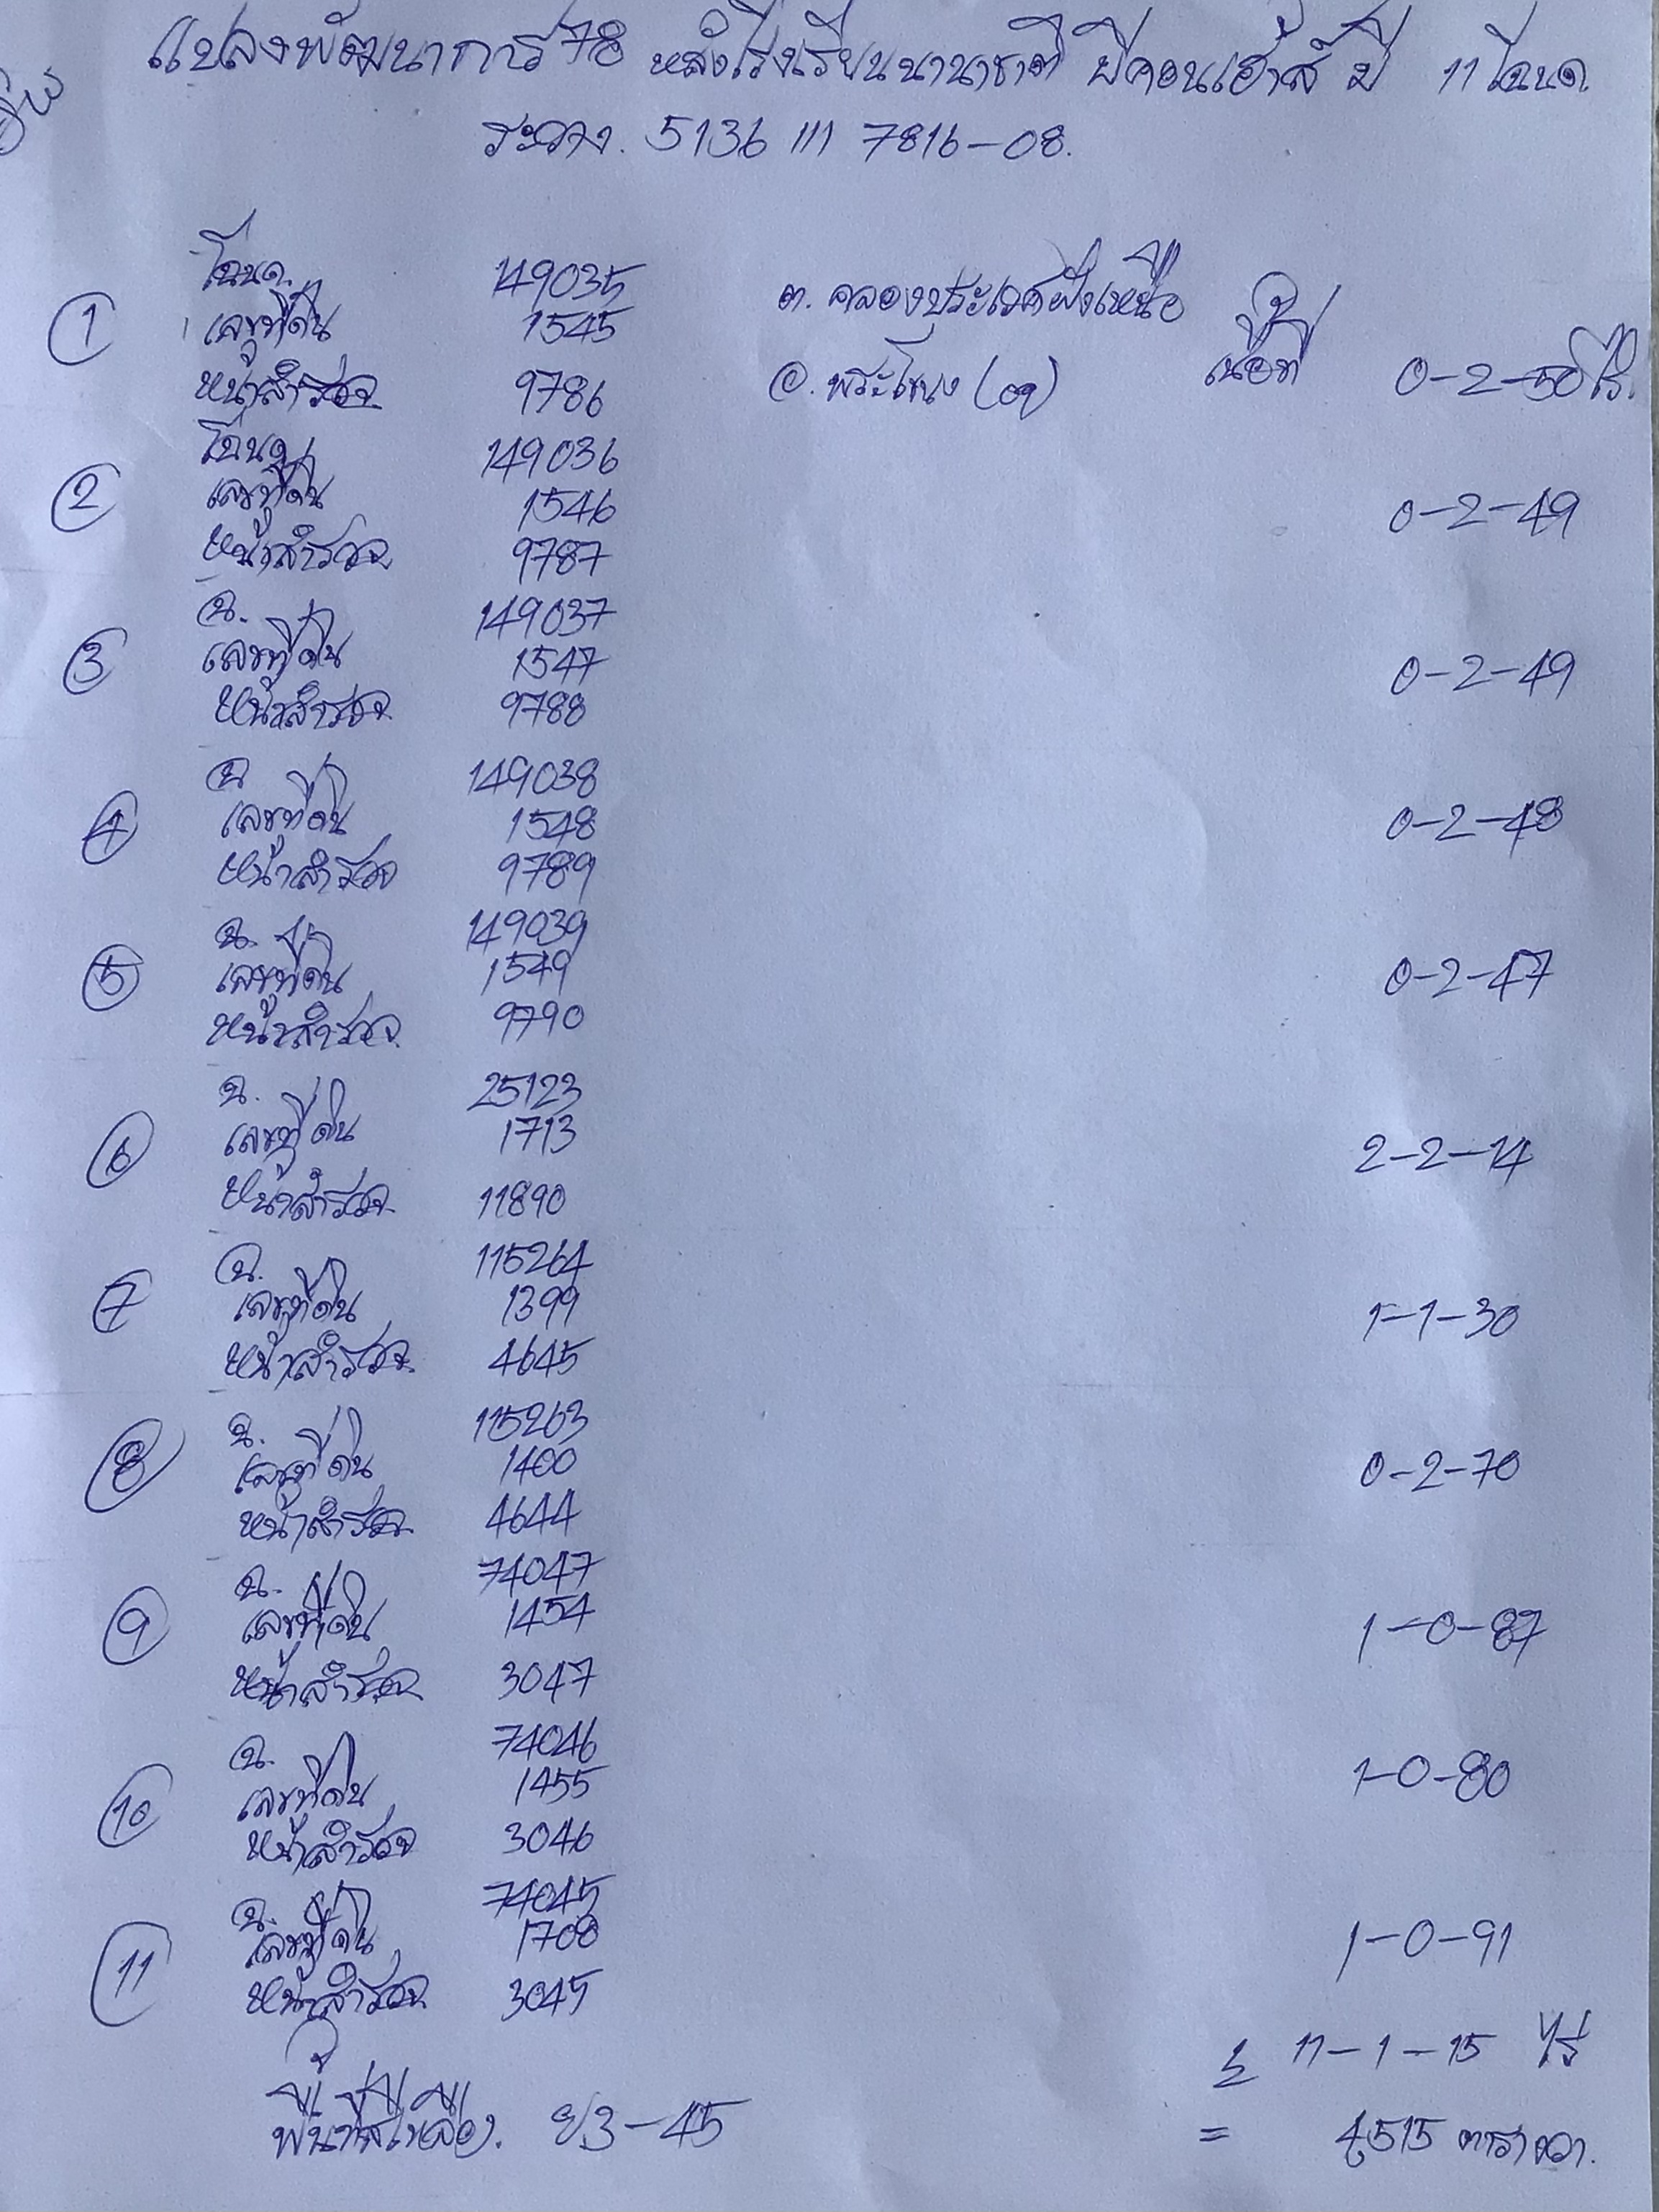 แปลงพัฒนาการ 78 หลังโรงเรียนนานาชาติ บีคอนเฮ้าส์ มี 11 โฉนด
ระวาง. 5136 III 7816-08.
โฉนด. 149035
① เลขที่ดิน 1545 ต. คลองประเวศฝั่งเหนือ
หน้าสำรวจ 9786 อ. พระโขนง (09) เนื้อที่ 0-2-50 ไร่.
โฉนด 149036
② เลขที่ดิน 1546 0-2-49
หน้าสำรวจ 9787
ฉ. 149037
③ เลขที่ดิน 1547 0-2-49
หน้าสำรวจ 9788
ฉ 149038
④ เลขที่ดิน 1548 0-2-48
หน้าสำรวจ 9789
ฉ. 149039
⑤ เลขที่ดิน 1549 0-2-47
หน้าสำรวจ 9790
ฉ. 25123
⑥ เลขที่ดิน 1713 2-2-14
หน้าสำรวจ 11890
ฉ. 115264
⑦ เลขที่ดิน 1399 1-1-30
หน้าสำรวจ 4645
ฉ. 115263
⑧ เลขที่ดิน 1400 0-2-70
หน้าสำรวจ 4644
ฉ. 74047
⑨ เลขที่ดิน 1454 1-0-87
หน้าสำรวจ 3047
ฉ. 74046
⑩ เลขที่ดิน 1455 1-0-80
หน้าสำรวจ 3046
ฉ. 74045
⑪ เลขที่ดิน 1708 1-0-91
หน้าสำรวจ 3045
Σ 11-1-15 ไร่
พื้นที่สีเหลือง. ย.3-45 = 4,515 ตารางวา.